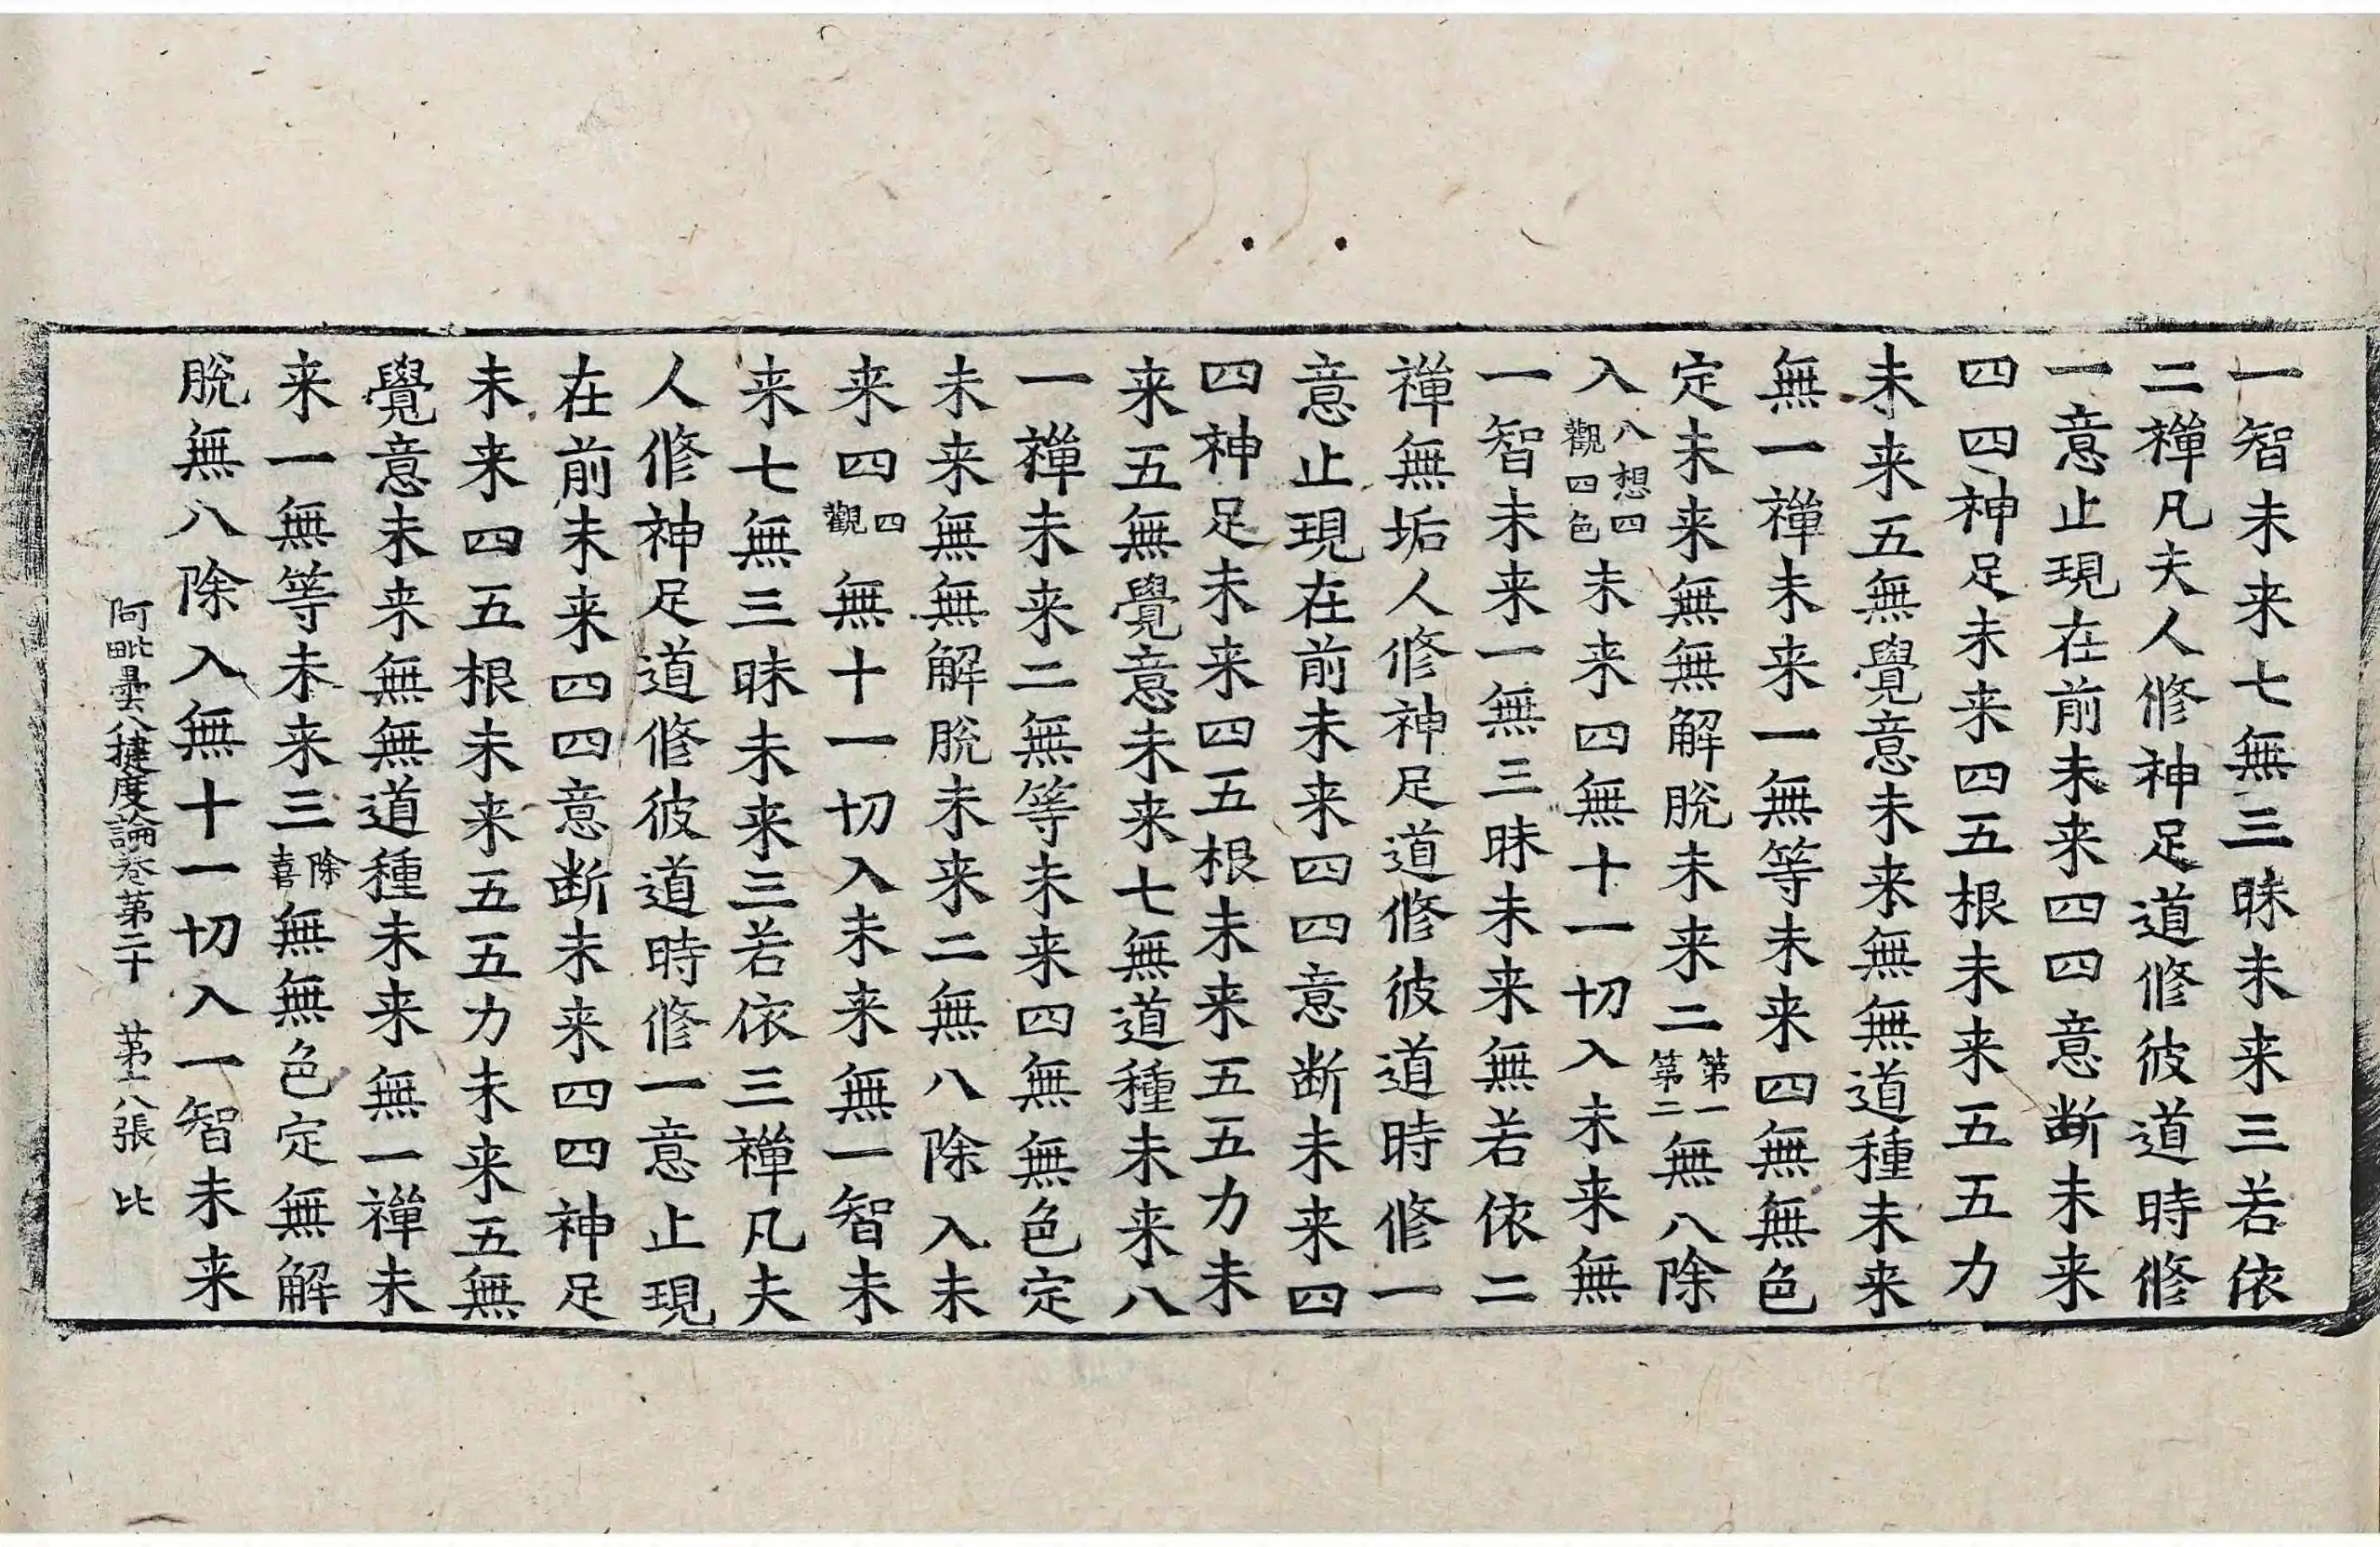 一智未来七無三昧未来三若依
二禅凡夫人修神足道修彼道時修
一意止現在前未来四四意断未来
四四神足未来四五根未来五五力
未来五無覺意未来無無道種未来
無一禅未来一無等未来四無無色
定未来無無解脫未来二第一第二無八除
入八想四觀四色未来四無十一切入未来無
一智未来一無三昧未来無若依二
禅無垢人修神足道修彼道時修一
意止現在前未来四四意断未来四
四神足未来四五根未来五五力未
来五無覺意未来七無道種未来八
一禅未来二無等未来四無無色定
未来無無解脫未来二無八除入未
来四四觀無十一切入未来無一智未
来七無三昧未来三若依三禅凡夫
人修神足道修彼道時修一意止現
在前未来四四意断未来四四神足
未来四五根未来五五力未来五無
覺意未来無無道種未来無一禅未
来一無等未来三除喜無無色定無解
脫無八除入無十一切入一智未来
阿毗曇八揵度論卷第二十　第十八張　比